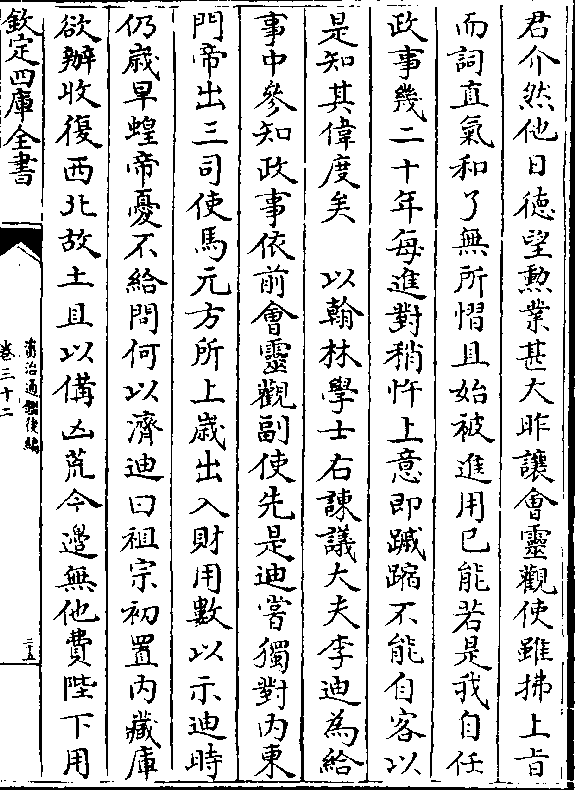 君介然他日德望勲業甚大昨讓會靈觀使雖拂上㫖
而詞直氣和了無所慴且始被進用已能若是我自任
政事幾二十年每進對稍忤上意即蹙踖不能自容以
是知其偉度矣　以翰林學士右諫議大夫李迪為給
事中參知政事依前會靈觀副使先是迪嘗獨對内東
門帝出三司使馬元方所上歲出入財用數以示迪時
仍歲旱蝗帝憂不給問何以濟迪曰祖宗初置内藏庫
欲辦收復西北故土且以備凶荒今邊無他費陛下用
欽定四庫全書
資治通鑑後編
卷三十二
三五